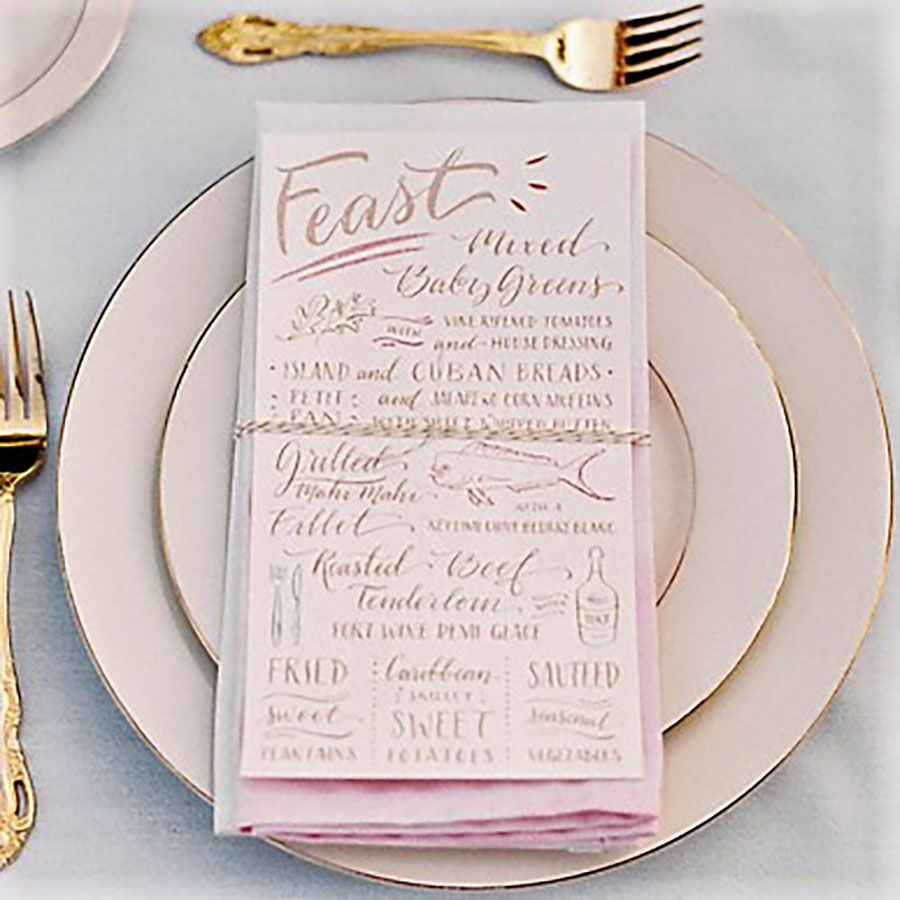 Feast
Mixed
Baby Greens
WITH VINE RIPENED TOMATOES
and HOUSE DRESSING
· ISLAND and CUBAN BREADS ·
PETIT and JALAPEÑO CORN MUFFINS
PAN WITH SWEET WHIPPED BUTTER
Grilled
Mahi Mahi
WITH A
Fillet KEY LIME BEURRE BLANC
Roasted · Beef
Tenderloin WITH
PORT WINE DEMI-GLACE
FRIED Caribbean SAUTEED
Sweet SWEET Seasonal
PLANTAINS POTATOES VEGETABLES